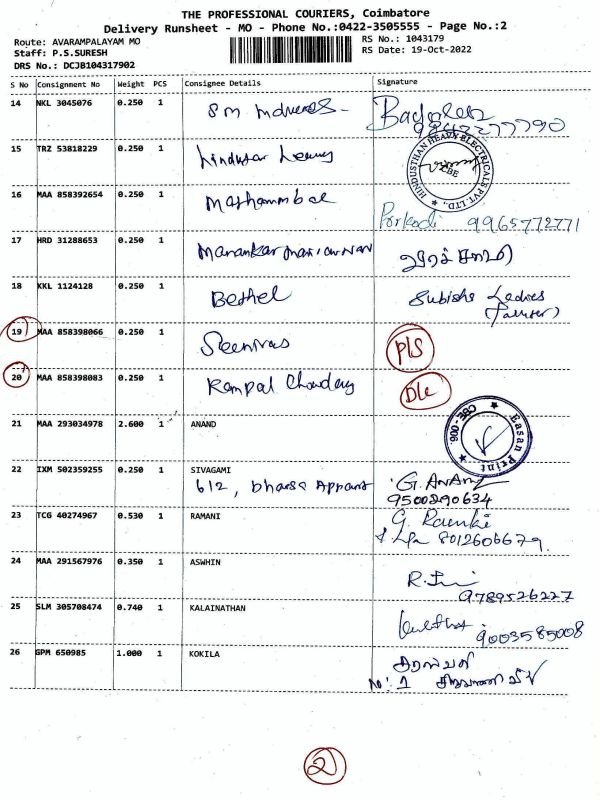 THE PROFESSIONAL COURIERS, Coimbatore
Delivery Runsheet - MO - Phone No.:0422-3505555 - Page No.:2
Route: AVARAMPALAYAM MO RS No.: 1043179
Staff: P.S.SURESH RS Date: 19-Oct-2022
DRS No.: DCJB104317902
S No Consignment No Weight PCS Consignee Details Signature
14 NKL 3045076 0.250 1 SM
15 TRZ 53818229 0.250 1
HINDUSTHAN HEAVY ELECTRICALS PVT. LTD. CBE
16 MAA 858392654 0.250 1 Porkodi 9965772771
17 HRD 31288653 0.250 1
18 KKL 1124128 0.250 1 Bethel Subisha Ladies
19 MAA 858398066 0.250 1 Sreenivas PLS
20 MAA 858398083 0.250 1 Rampal DLC
21 MAA 293034978 2.600 1 ANAND
Easan Print CBE-006.
22 IXM 502359255 0.250 1 SIVAGAMI
612, G. ANAND
9500290634
23 TCG 40274967 0.530 1 RAMANI G.
8012606679
24 MAA 291567976 0.350 1 ASWHIN R.
9789526227
25 SLM 305708474 0.740 1 KALAINATHAN
9003585008
26 GPM 650985 1.000 1 KOKILA
No: 1
2